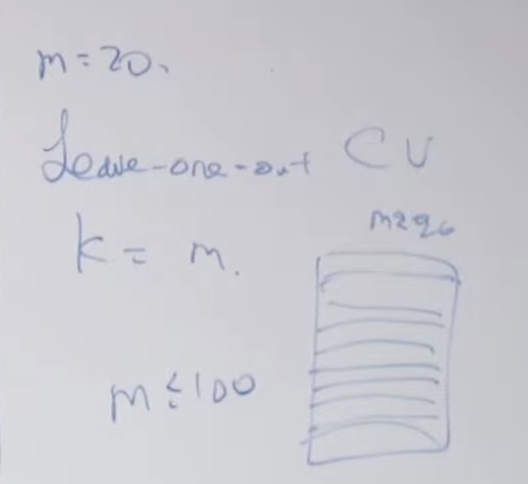 m = 20.
Leave-one-out CV
k = m.
m ≤ 100